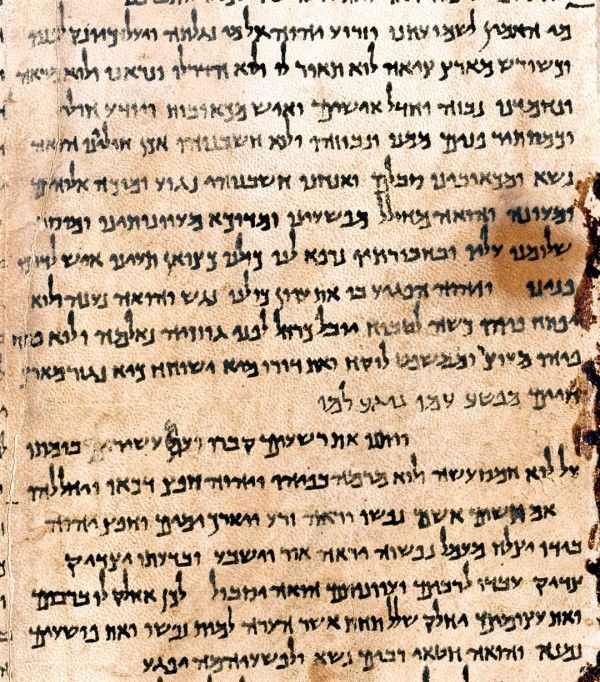 מי האמין לשמועתנו וזרוע יהוה אל מי נגלתה ויעל כיונק לפניו
וכשורש מארץ ציה לוא תואר לו ולוא הדר לו ונראנו ולוא מראה
ונחמדנו נבזה וחדל אישים ואיש מכאובות וידוע חולי
וכמסתר פנים ממנו ונבוזהו ולוא חשבנוהו אכן חולינו הואה
נשא ומכאובינו סבלם ואנחנו חשבנוהו נגוע ומוכה אלוהים
ומעונה והואה מחולל מפשעינו ומדוכא מעוונותינו ומוסר
שלומנו עליו ובחבורתיו נרפא לנו כולנו כצואן תעינו איש לדרכו
פנינו ויהוה הפגיע בו את עוון כולנו נגש והואה נענה ולוא
יפתח פיהו כשה לטבוח יובל כרחל לפני גוזזיה נאלמה ולוא פתח
פיהו מעוצר וממשפט לוקח ואת דורו מיא ישוחח כיא נגזר מארץ
חיים מפשע עמו נוגע למו
ויתנו את רשעים קברו ועם עשיר בומתו
על לוא חמס עשה ולוא מרמה בפיהו ויהוה חפץ דכאו ויחללהו
אם תשים אשם נפשו יראה זרע ויארך ימים וחפץ יהוה
בידו יצלח מעמל נפשוה יראה אור וישבע ובדעתו יצדיק
צדיק עבדו לרבים ועוונותם הואה יסבול לכן אחלק לו ברבים
ואת עצומים יחלק שלל תחת אשר הערה למות נפשו ואת פושעים
נמנה והואה חטאי רבים נשא ולפשעיהמה יפגע